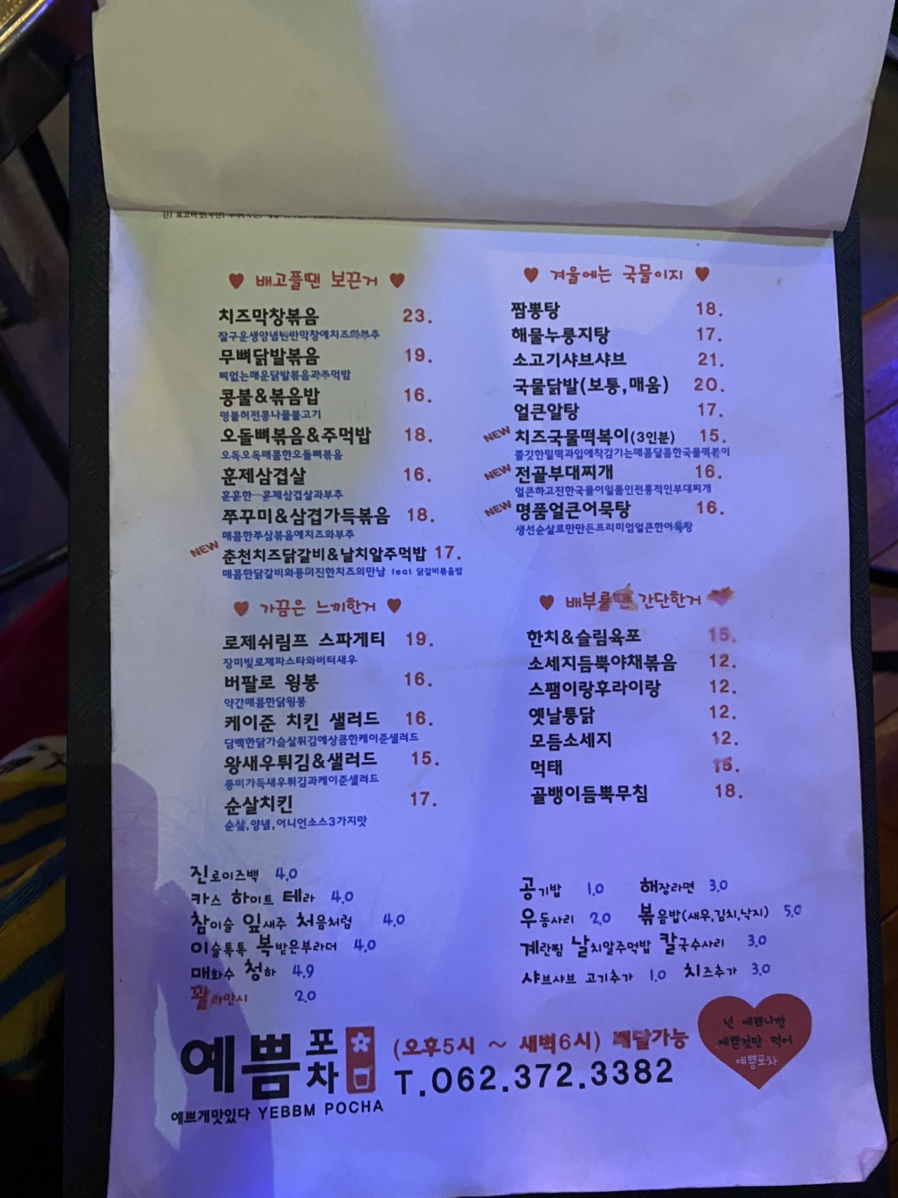 ♥ 배고플땐 보끈거 ♥
치즈막창볶음 23.
무뼈닭발볶음 19.
뼈없는매운닭발볶음과주먹밥
콩불&볶음밥 16.
명불허전콩나물불고기
오돌뼈볶음&주먹밥 18.
오독오독매콤한오돌뼈볶음
훈제삼겹살 16.
훈훈한…훈제삼겹살과부추
쭈꾸미&삼겹가득볶음 18.
매콤한쭈삼볶음에치즈와부추
NEW 춘천치즈닭갈비&날치알주먹밥 17.
매콤한닭갈비와풍미진한치즈의만남 feat 닭갈비볶음밥
♥ 가끔은 느끼한거 ♥
로제쉬림프 스파게티 19.
장미빛로제파스타와버터새우
버팔로 윙봉 16.
약간매콤한닭윙봉
케이준 치킨 샐러드 16.
담백한닭가슴살튀김에상콤한케이준샐러드
왕새우튀김&샐러드 15.
풍미가득새우튀김과케이준샐러드
순살치킨 17.
순살,양념,어니언소스3가지맛
♥ 겨울에는 국물이지 ♥
짬뽕탕 18.
해물누룽지탕 17.
소고기샤브샤브 21.
국물닭발(보통,매움) 20.
얼큰알탕 17.
NEW 치즈국물떡볶이(3인분) 15.
쫄깃한밀떡과입에착감기는매콤달콤한국물떡볶이
NEW 전골부대찌개 16.
얼큰하고진한국물이일품인전통적인부대찌개
NEW 명품얼큰어묵탕 16.
생선순살로만만든프리미엄얼큰한어묵탕
♥ 배부를땐 간단한거
한치&슬림육포 15.
소세지듬뿍야채볶음 12.
스팸이랑후라이랑 12.
옛날통닭 12.
모듬소세지 12.
먹태 15.
골뱅이듬뿍무침 18.
진로이즈백 4.0
카스 하이트 테라 4.0
참이슬 잎새주 처음처럼 4.0
이슬톡톡 복받은부라더 4.0
매화수 청하 4.9
2.0
공기밥 1.0 해장라면 3.0
우동사리 2.0 볶음밥(새우,김치,낙지) 5.0
계란찜 날치알주먹밥 칼국수사리 3.0
샤브샤브 고기추가 1.0 치즈추가 3.0
예쁨 포차
(오후5시 ~ 새벽6시) 배달가능
T.062.372.3382
예쁘게맛있다 YEBBM POCHA
넌 예쁘니깐
예쁜것만 먹어
예쁨포차